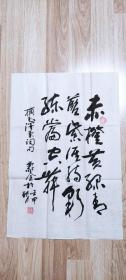 赤橙黄绿青
蓝紫谁持彩
练当空舞
摘毛泽东词句